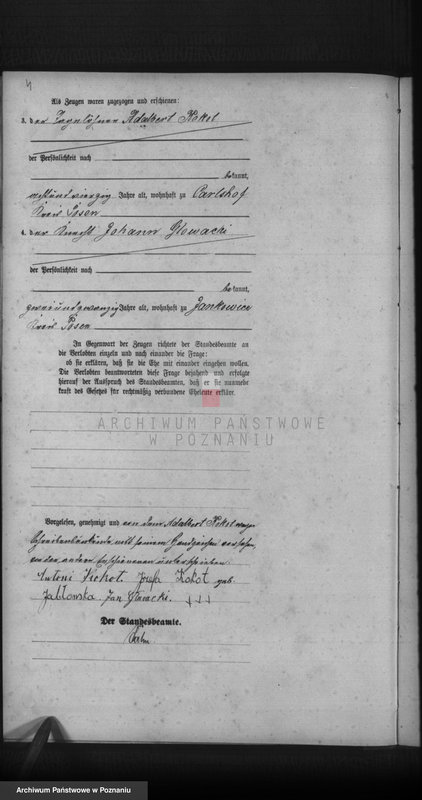 4
Als Zeugen waren zugezogen und erschienen:
3. der Tagelöhner Adalbert Kokot
der Persönlichkeit nach
bekannt,
Jahre alt, wohnhaft zu Carlshof
Kreis Posen
4. der Knecht Johann Glowacki
der Persönlichkeit nach
bekannt,
zweiundzwanzig Jahre alt, wohnhaft zu Jankowice
Kreis Posen
In Gegenwart der Zeugen richtete der Standesbeamte an
die Verlobten einzeln und nach einander die Frage:
ob sie erklären, daß sie die Ehe mit einander eingehen wollen.
Die Verlobten beantworteten diese Frage bejahend und erfolgte
hierauf der Ausspruch des Standesbeamten, daß er sie nunmehr
kraft des Gesetzes für rechtmäßig verbundene Eheleute erkläre.
ARCHIWUM PAŃSTWOWE
W POZNANIU
Vorgelesen, genehmigt und von dem Adalbert Kokot wegen
Schreibensunkunde mit seinem Handzeichen versehen,
von den andern Erschienenen unterschrieben
Antoni Kokot. Józefa Kokot geb.
Jabłonska. Jan Głowacki. +++
Der Standesbeamte.
Archiwum Państwowe w Poznaniu